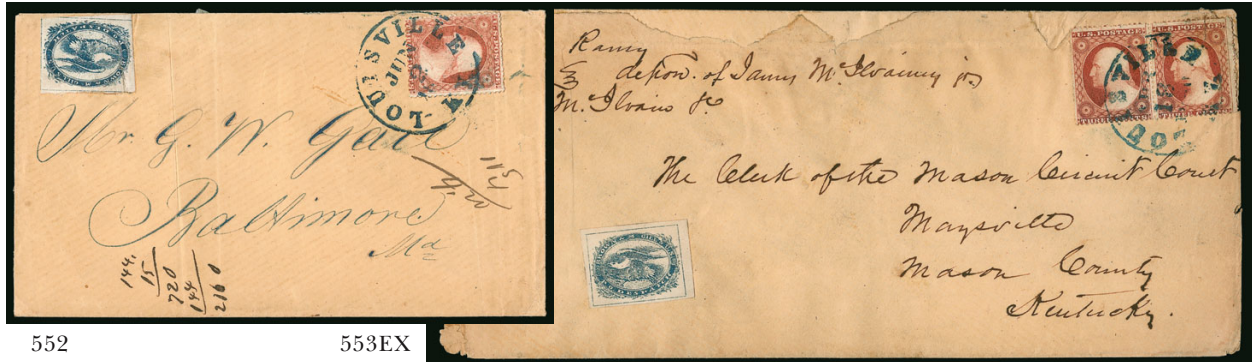 LOUISVILLE KY
JUN
Mr. G. W. Gail
Baltimore
Md
144.
15
720
144
2160
552
553EX
U.S. POSTAGE
U.S. POSTAGE
Ramy
depon. of James McIlvainy jr
McIlvain &c
The Clerk of the Mason Circuit Court
Maysville
Mason County
Kentucky.